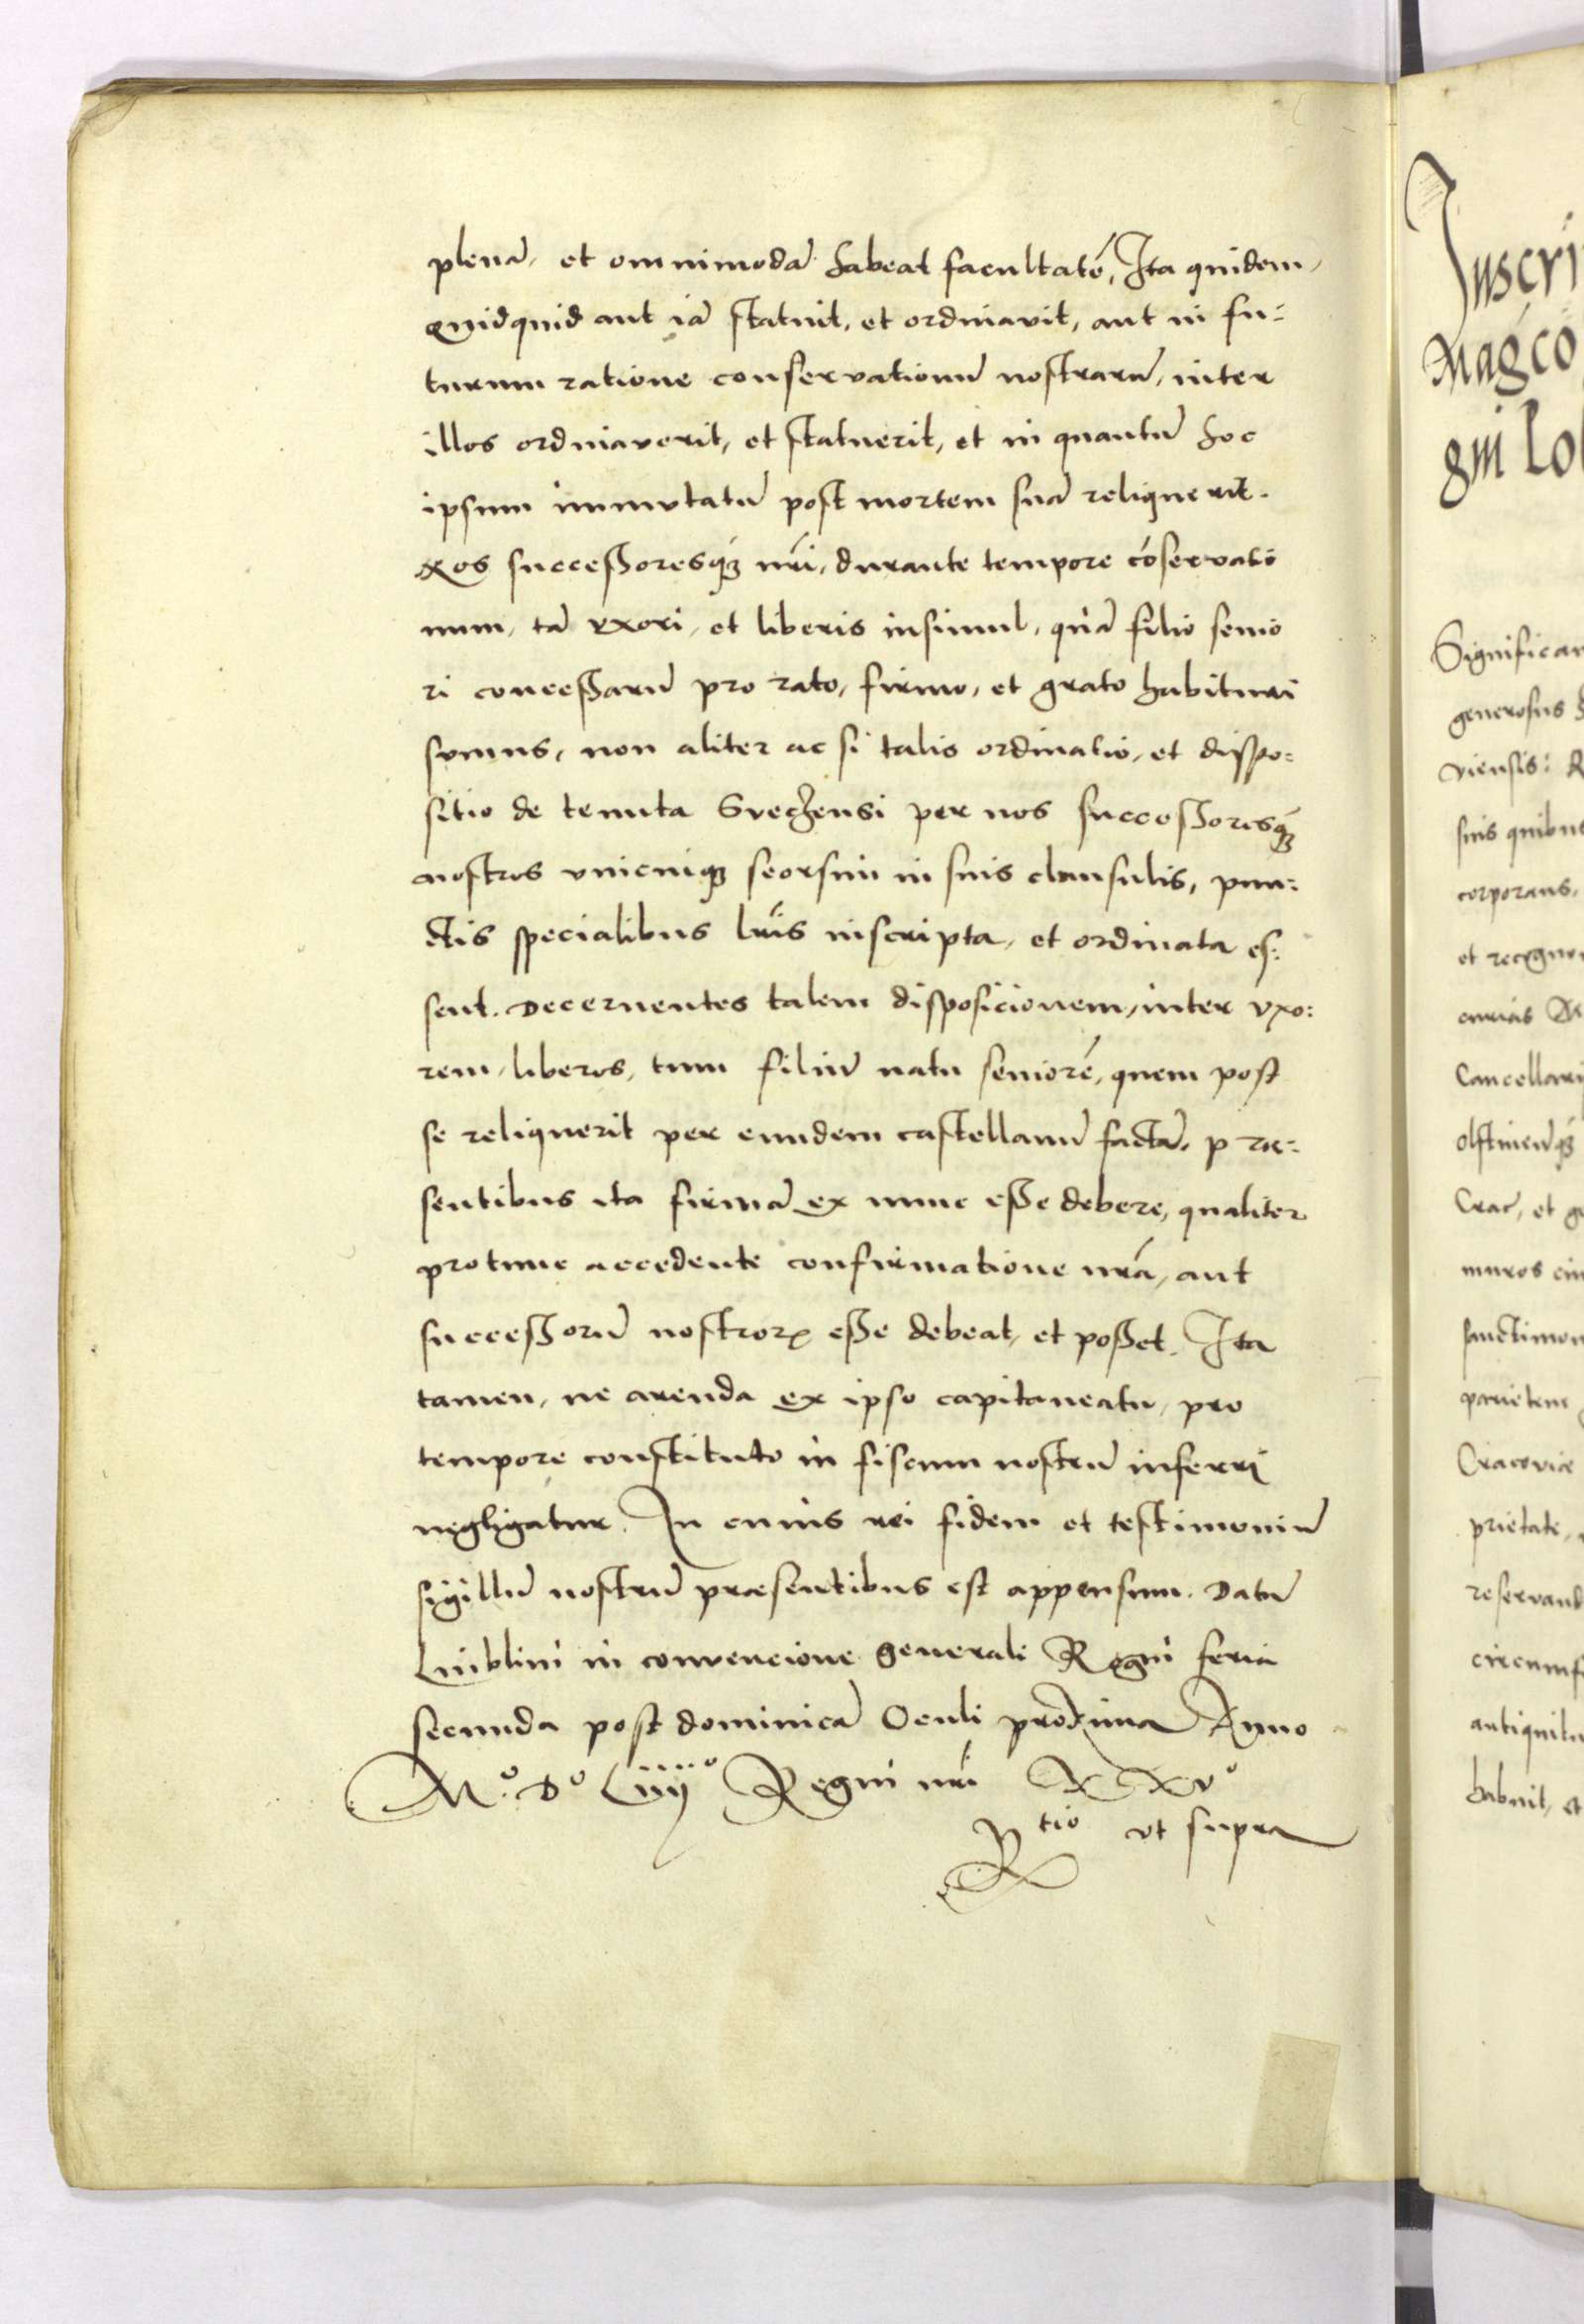 plenā, et omnimodā habeat facultatē, Ita quidem,
quidquid aut iā statuit, et ordinavit, aut in fu=
turum ratione conservationū nostrarū, inter
illos ordinaverit, et statuerit, et in quantū hoc
ipsum immutatū post mortem suā reliquerit.
Nos successoresq; nr̃i, durante tempore cōservatio
num, tā uxori, et liberis insimul, quā filio senio
ri concessarū pro rato, firmo, et grato habituri
sumus, non aliter ac si talis ordinatio, et dispo=
sitio de tenuta Srzechensi per nos successoresq;
nostros unicuiq; seorsim in suis clausulis, pun=
ctis specialibus lr̃is inscripta, et ordinata es=
sent. Decernentes talem disposicionem, inter uxo=
rem, liberos, tum filiū natu seniorē, quem post
se reliquerit per eundem castellanū factā, præ=
sentibus ita firmā ex nunc esse debere, qualiter
protunc accedente confirmatione nr̃a, aut
successorū nostror̃ esse debeat, et posset. Ita
tamen, ne arenda ex ipso capitaneatu, pro
tempore constituto in fiscum nostrū inferri
negligatur. In cuius rei fidem et testimoniū
sigillū nostrū præsentibus est appensum. Datū
Liublini in convencione generali Regni feria
secunda post dominicā Oculi proxima Anno
Mº. Dº Liiijº Regni nr̃i XXVº
Rtio ut supra
Inscri
Magco
gni Lo
Significam
generosus
viensis: R
suis quibus
corporans,
et recogno
Cancellari
Crac, et ge
muros
sanctimon
parietem
Cracoviæ
prietate,
reservand
circumf
antiquitu
habuit, et